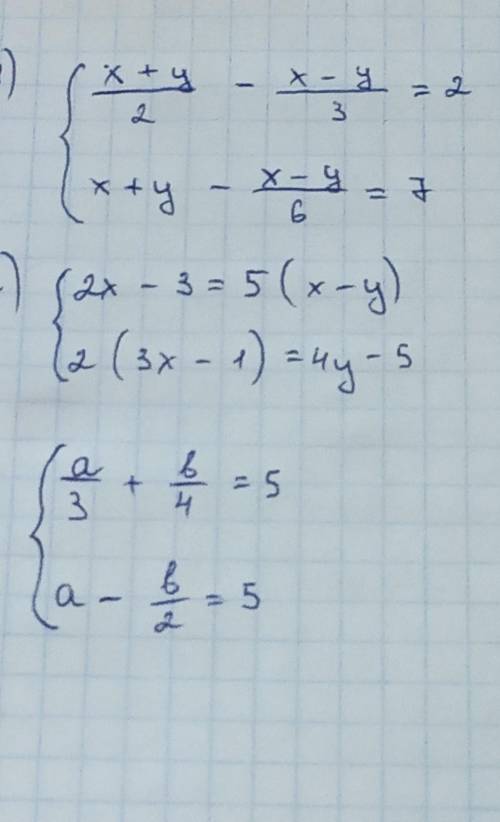 ) { (x + y)/2 - (x - y)/3 = 2
x + y - (x - y)/6 = 7
) { 2x - 3 = 5 (x - y)
2 (3x - 1) = 4y - 5
{ a/3 + b/4 = 5
a - b/2 = 5